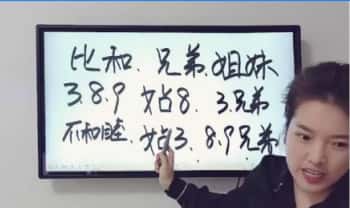 比和、兄弟.姐妹
3.8.9 站8. 3兄弟
不和睦. 站3. 8.9兄弟